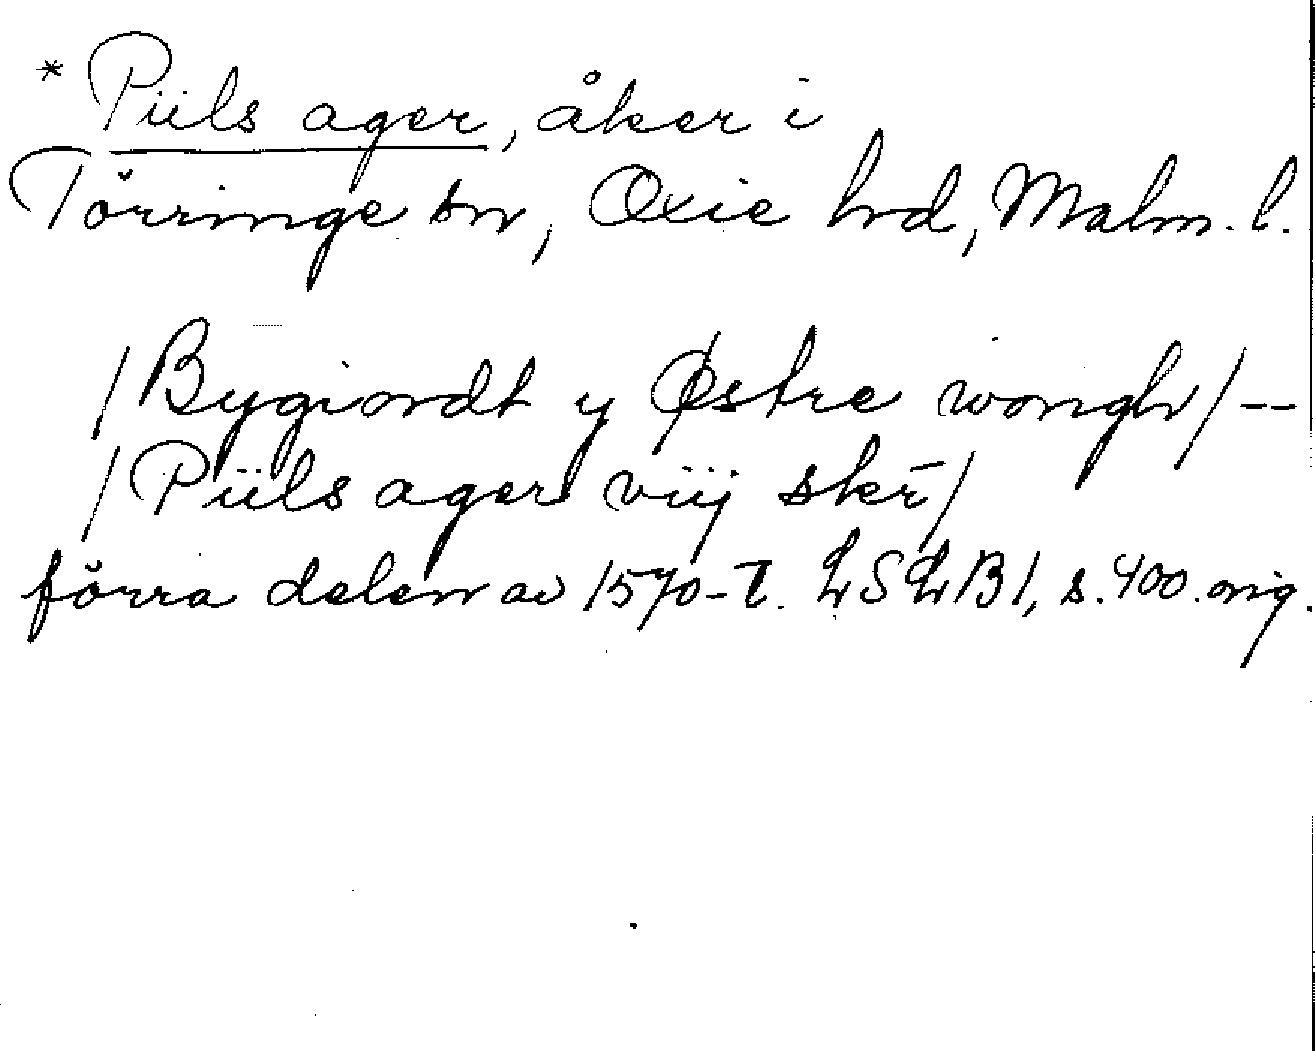 * Piils ager, åker i
Törringe sn, Oxie hrd, Malm. l.
/Bygiordt y Østre wongh/--
/Piils ager viij sker̄/
förra delen av 1570-t. LSLB1, s. 400. orig.